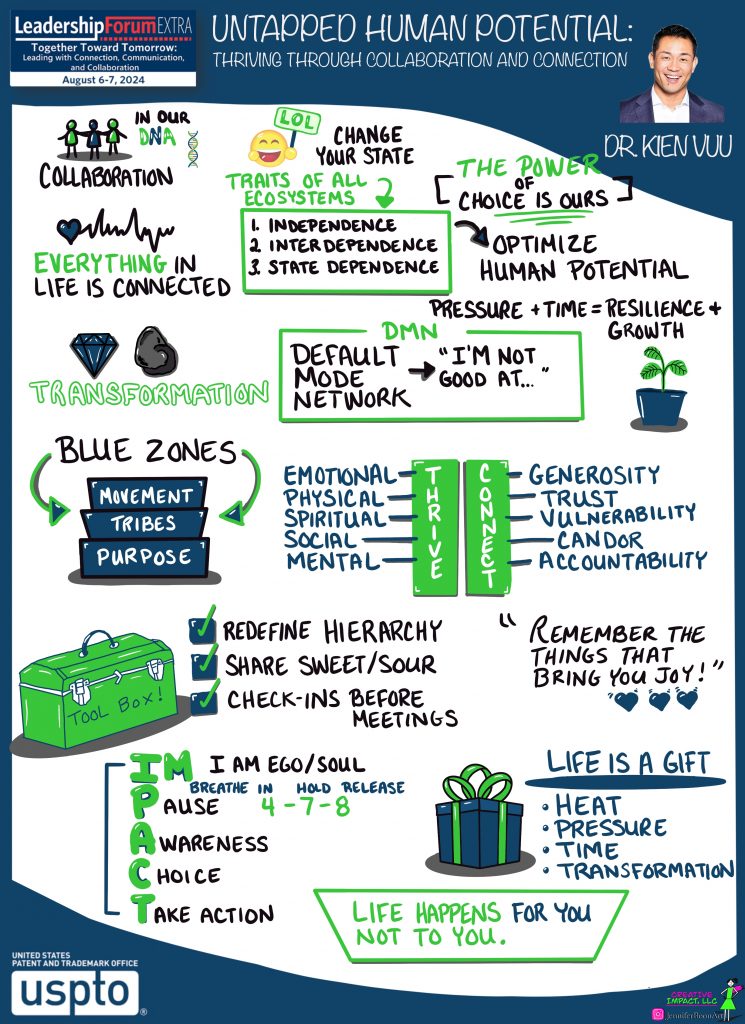 LeadershipForumEXTRA
Together Toward Tomorrow:
Leading with Connection, Communication,
and Collaboration
August 6-7, 2024
UNTAPPED HUMAN POTENTIAL:
THRIVING THROUGH COLLABORATION AND CONNECTION
DR. KIEN VUU
IN OUR
DNA
COLLABORATION
LOL
CHANGE
YOUR STATE
TRAITS OF ALL
ECOSYSTEMS
1. INDEPENDENCE
2. INTERDEPENDENCE
3. STATE DEPENDENCE
THE POWER
OF
[CHOICE IS OURS]
OPTIMIZE
HUMAN POTENTIAL
EVERYTHING IN
LIFE IS CONNECTED
PRESSURE + TIME = RESILIENCE +
GROWTH
TRANSFORMATION
DMN
DEFAULT
MODE
NETWORK
"I'M NOT
GOOD AT..."
BLUE ZONES
MOVEMENT
TRIBES
PURPOSE
EMOTIONAL
PHYSICAL
SPIRITUAL
SOCIAL
MENTAL
THRIVE
CONNECT
GENEROSITY
TRUST
VULNERABILITY
CANDOR
ACCOUNTABILITY
TOOL BOX!
REDEFINE HIERARCHY
SHARE SWEET/SOUR
CHECK-INS BEFORE
MEETINGS
"REMEMBER THE
THINGS THAT
BRING YOU JOY!"
IM I AM EGO/SOUL
BREATHE IN HOLD RELEASE
PAUSE 4-7-8
AWARENESS
CHOICE
TAKE ACTION
LIFE IS A GIFT
• HEAT
• PRESSURE
• TIME
• TRANSFORMATION
LIFE HAPPENS FOR YOU
NOT TO YOU.
UNITED STATES
PATENT AND TRADEMARK OFFICE
uspto®
CREATIVE
IMPACT, LLC